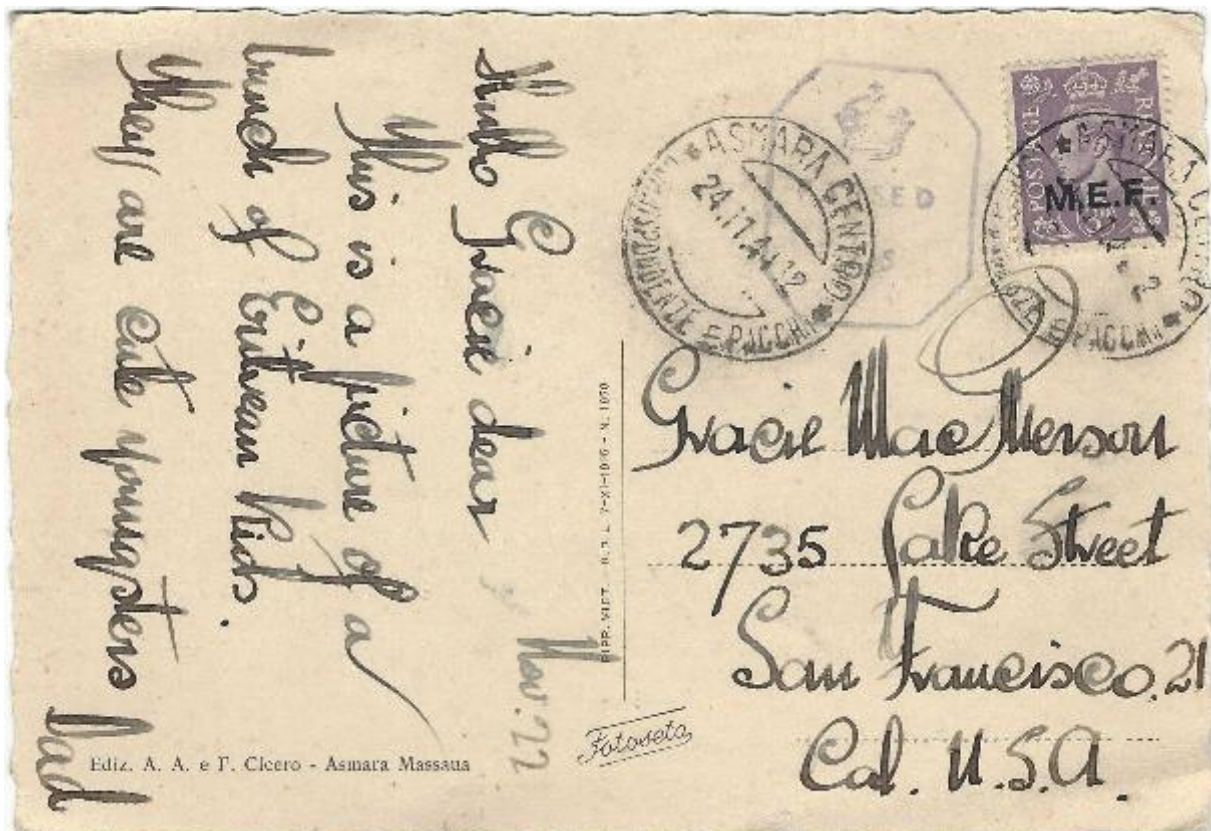 Nov. 22
Hullo Gracie dear
This is a picture of a
bunch of Eritrean Kids.
They are cute youngsters
Dad
Ediz. A. A. e F. Cicero - Asmara Massaua
Fotoseta
RIPR. VIET.
N. 1070
ASMARA CENTRO
CORRISPONDENZE E PACCHI
24.11.44.12
POSTAGE
M.E.F.
ASMARA CENTRO
E PACCHI
Gracie MacPherson
2735 Lake Street
San Francisco. 21
Cal. U.S.A.